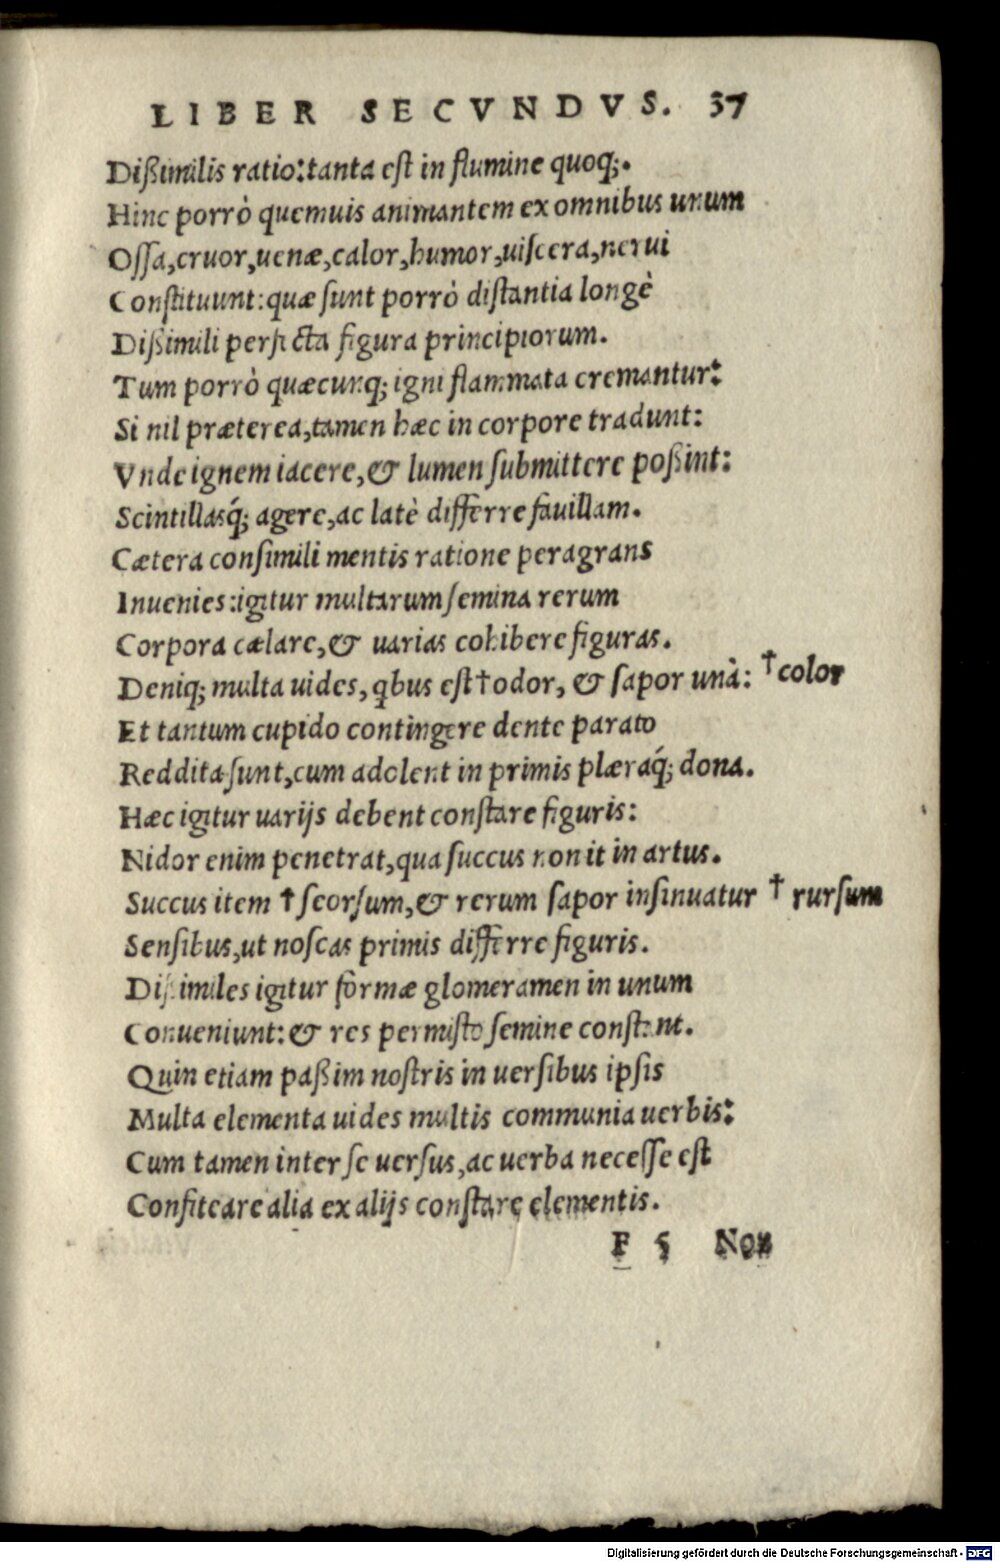 LIBER SECVNDVS. 37
Dißimilis ratio: tanta est in flumine quoq;.
Hinc porrò quemuis animantem ex omnibus unum
Ossa, cruor, uenæ, calor, humor, uiscera, nerui
Constituunt: quæ sunt porrò distantia longè
Dißimili perfecta figura principiorum.
Tum porrò quæcunq; igni flammata cremantur:
Si nil præterea, tamen hæc in corpore tradunt:
Vnde ignem iacere, & lumen submittere poßint:
Scintillasq́; agere, ac latè differre fauillam.
Cætera consimili mentis ratione peragrans
Inuenies: igitur multarum semina rerum
Corpora cælare, & uarias cohibere figuras.
Deniq; multa uides, qbus est † odor, & sapor unà: † color
Et tantum cupido contingere dente parato
Reddita sunt, cum adolent in primis plæraq́; dona.
Hæc igitur uarijs debent constare figuris:
Nidor enim penetrat, qua succus non it in artus.
Succus item † seorsum, & rerum sapor insinuatur † rursum
Sensibus, ut noscas primis differre figuris.
Dißimiles igitur formæ glomeramen in unum
Conueniunt: & res permisto semine constant.
Quin etiam paßim nostris in uersibus ipsis
Multa elementa uides multis communia uerbis:
Cum tamen inter se uersus, ac uerba necesse est
Confiteare alia ex alijs constare elementis.
F 5 Non
Digitalisierung gefördert durch die Deutsche Forschungsgemeinschaft - DFG